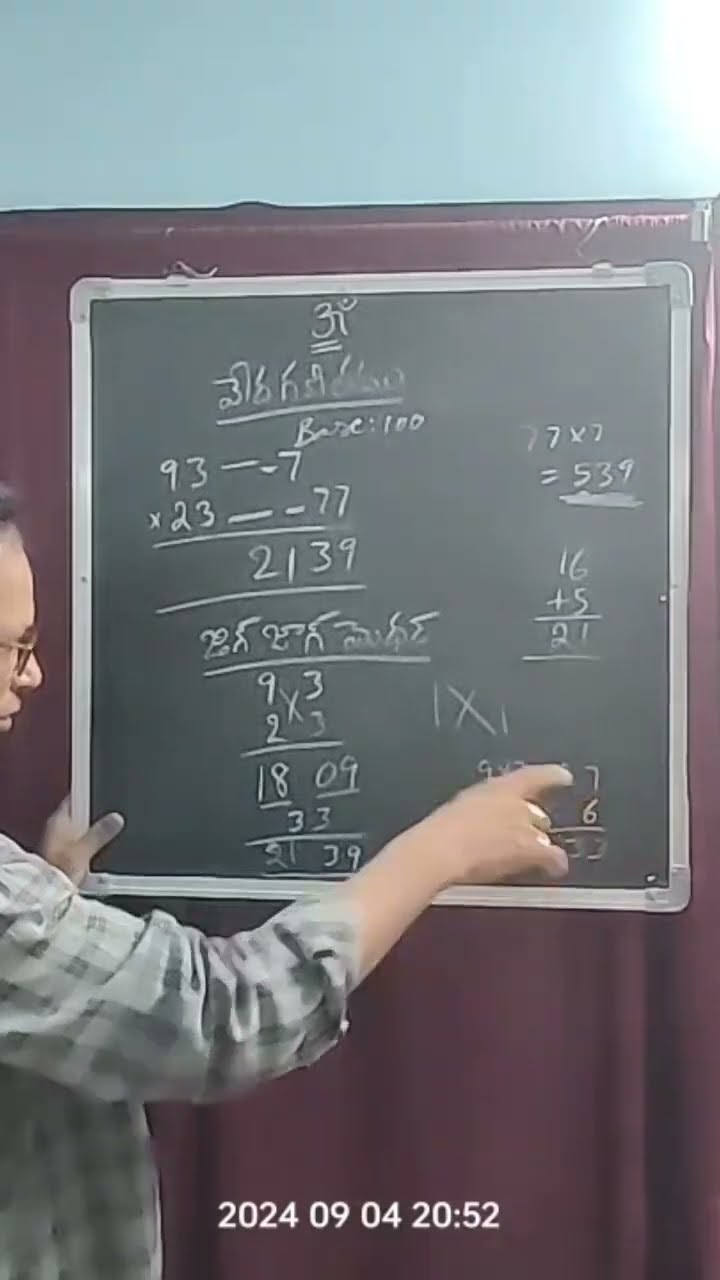 ॐ
Base: 100
93 — -7
×23 — -77
2139
77×7
= 539
16
+5
21
జిగ్ జాగ్ మెథడ్
9 3
2 3
18 09
33
21 39
|X|
7
6
33
2024 09 04 20:52